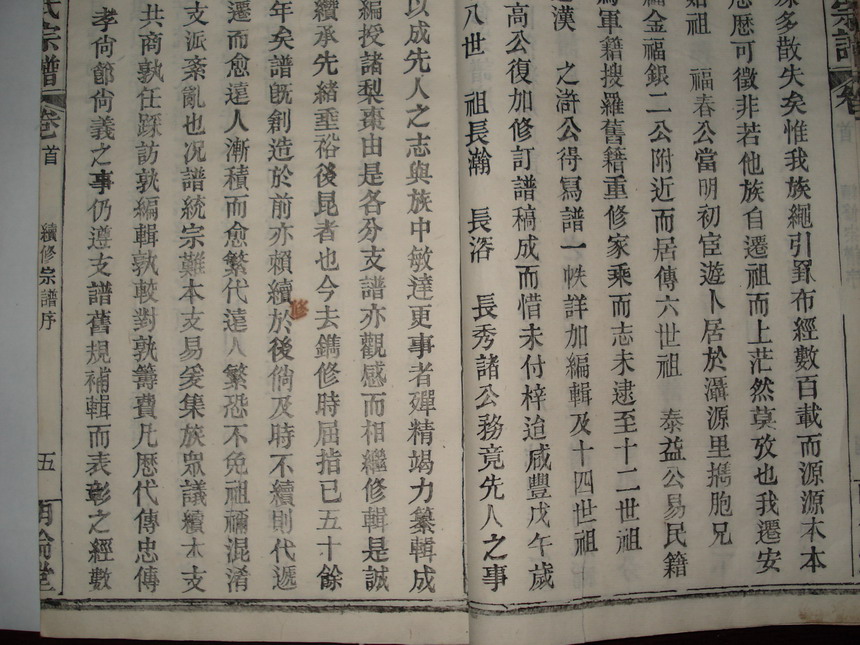 宗譜 卷
多散失矣惟我族繩引縣布經數百載而源源本本
歷歷可徵非若他族自遷祖而上茫然莫攷也我遷安
始祖 福春公當明初宦遊卜居於灄源里攜胞兄
福金福銀二公附近而居傳六世祖 泰益公易民籍
為軍籍搜羅舊籍重修家乘而志未逮至十二世祖
漢 之滸公得寫譜一帙詳加編輯及十四世祖
高公復加修訂譜稿成而惜未付梓迨咸豐戊午歲
八世 祖長瀚 長溶 長秀諸公務竟先人之事
以成先人之志與族中敏達更事者殫精竭力纂輯成
編授諸梨棗由是各分支譜亦觀感而相繼修輯是誠
續承先緒垂裕後昆者也今去鐫修時屈指已五十餘
年矣譜既創造於前亦賴續修於後倘及時不續則代遞
遷而愈遠人漸積而愈繁代遠人繁恐不免祖禰混淆
支派紊亂也況譜統宗難本支易爰集族眾議續本支
共商孰任踩訪孰編輯孰較對孰籌費凡歷代傳忠傳
孝尚節尚義之事仍遵支譜舊規補輯而表彰之經數
氏宗譜 卷首 續修宗譜序 五 明倫堂